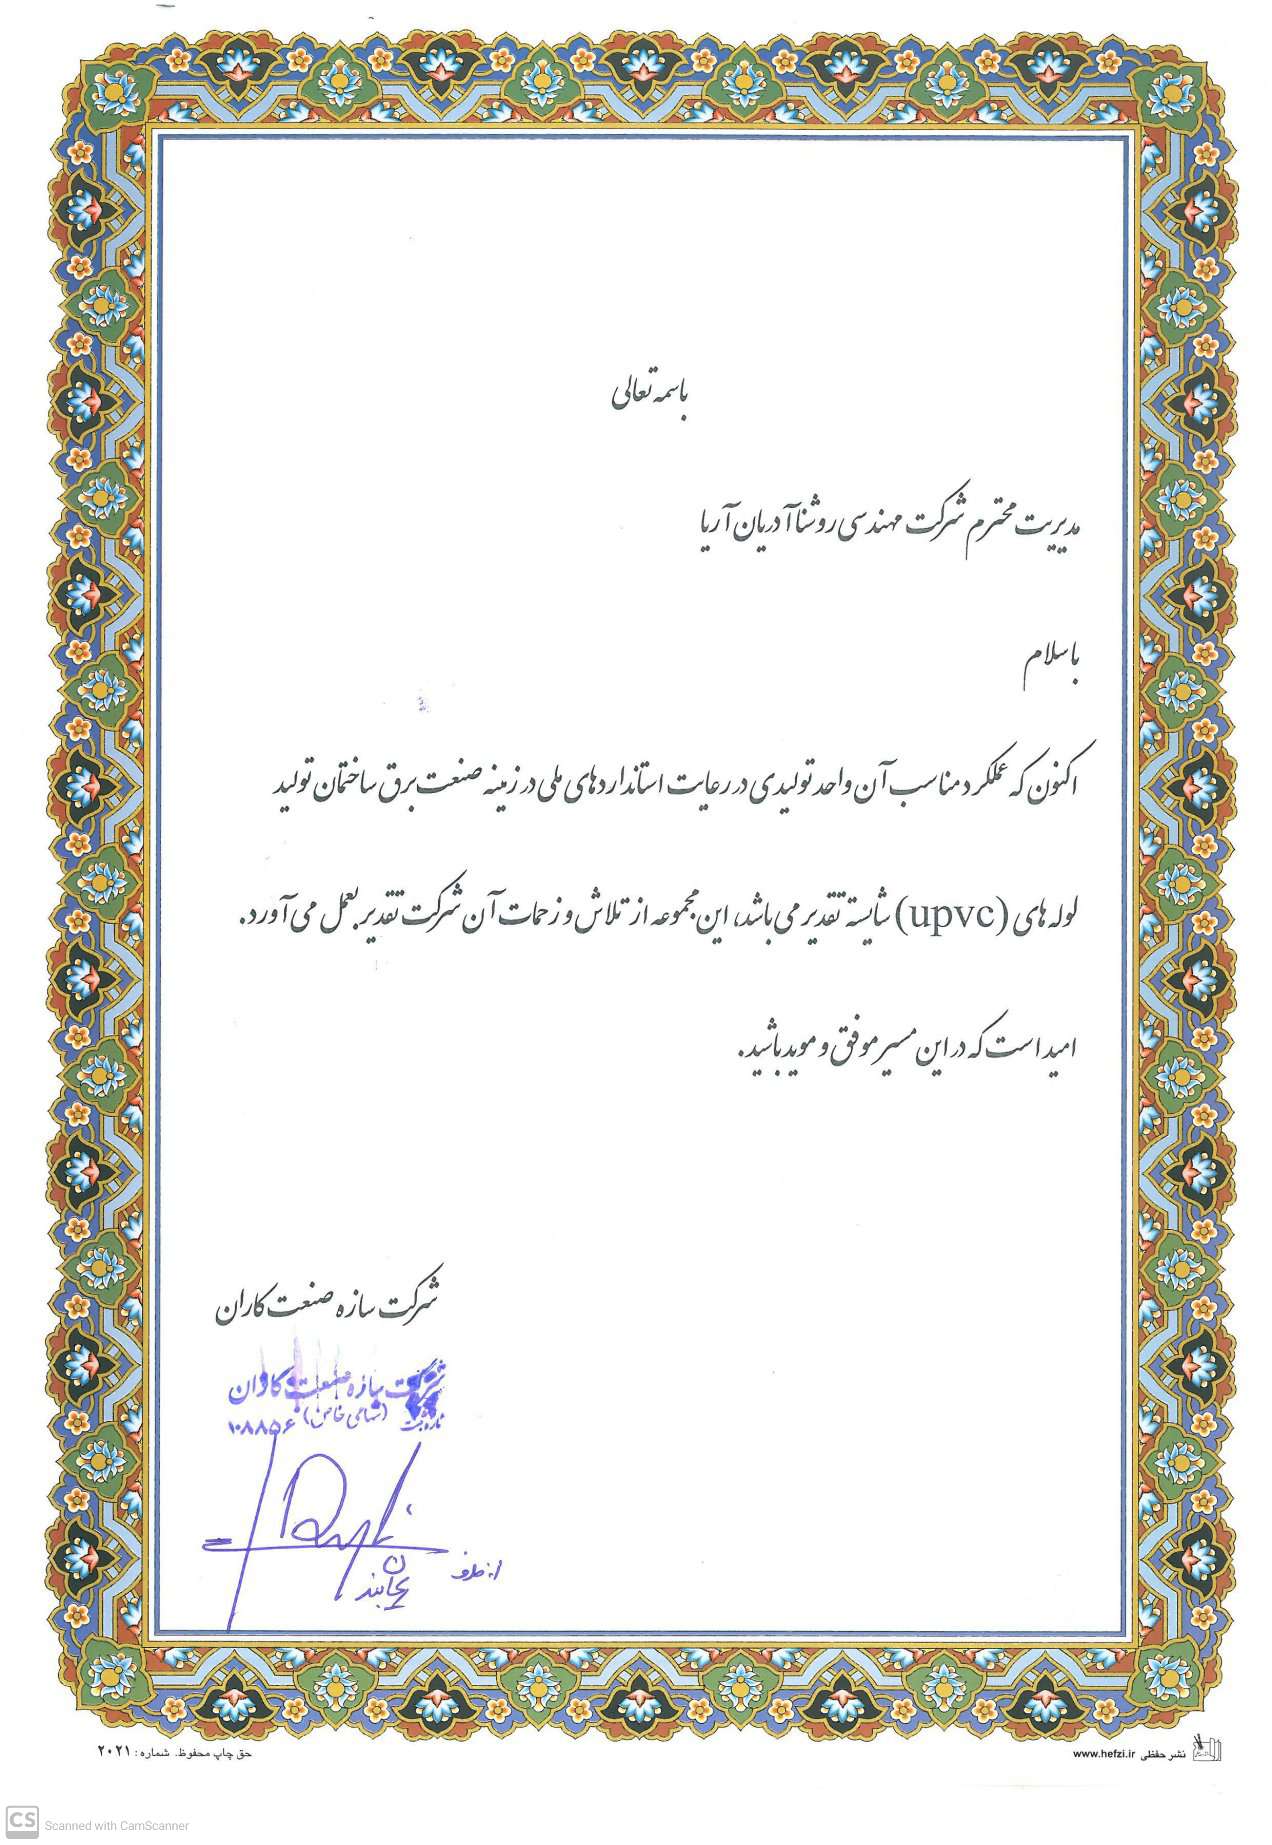 باسمه تعالی
مدیریت محترم شرکت مهندسی روشنا آدریان آریا
باسلام
اکنون که عملکرد مناسب آن واحد تولیدی در رعایت استانداردهای ملی در زمینه صنعت برق ساختمان تولید
لوله های (upvc) شایسته تقدیر می باشد، این مجموعه از تلاش و زحمات آن شرکت تقدیر بعمل می آورد.
امید است که در این مسیر موفق و موید باشید.
شرکت سازه صنعت کاران
شرکت سازه صنعت کاران
(سهامی خاص)
۱۰۸۸۵۶
از طرف
حق چاپ محفوظ. شماره: ۲۰۲۱
نشر حفظی www.hefzi.ir
CS Scanned with CamScanner